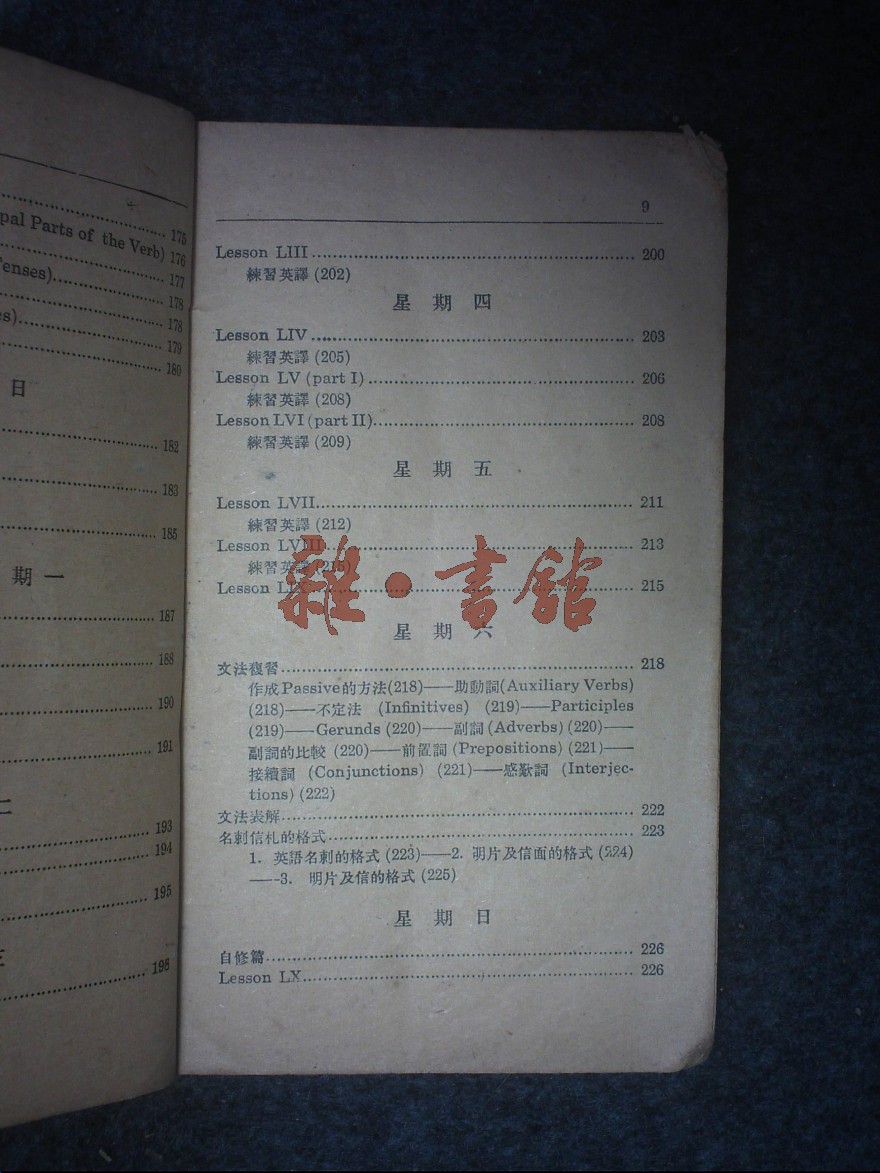 175
pal Parts of the Verb) 176
177
enses) 178
178
es) 179
180
日
182
183
185
期 一
187
188
190
191
二
193
194
195
198
9
Lesson LIII 200
練習英譯 (202)
星 期 四
Lesson LIV 203
練習英譯 (205)
Lesson LV (part I) 206
練習英譯 (208)
Lesson LVI (part II) 208
練習英譯 (209)
星 期 五
Lesson LVII 211
練習英譯 (212)
Lesson LVIII 213
練習英譯 (215)
Lesson LIX 215
雜·書館
星 期 六
文法複習 218
作成 Passive 的方法 (218)——助動詞 (Auxiliary Verbs)
(218)——不定法 (Infinitives) (219)——Participles
(219)——Gerunds (220)——副詞 (Adverbs) (220)——
副詞的比較 (220)——前置詞 (Prepositions) (221)——
接續詞 (Conjunctions) (221)——感歎詞 (Interjec-
tions) (222)
文法表解 222
名刺信札的格式 223
1. 英語名刺的格式 (223)——2. 明片及信面的格式 (224)
——3. 明片及信的格式 (225)
星 期 日
自修篇 226
Lesson LX 226